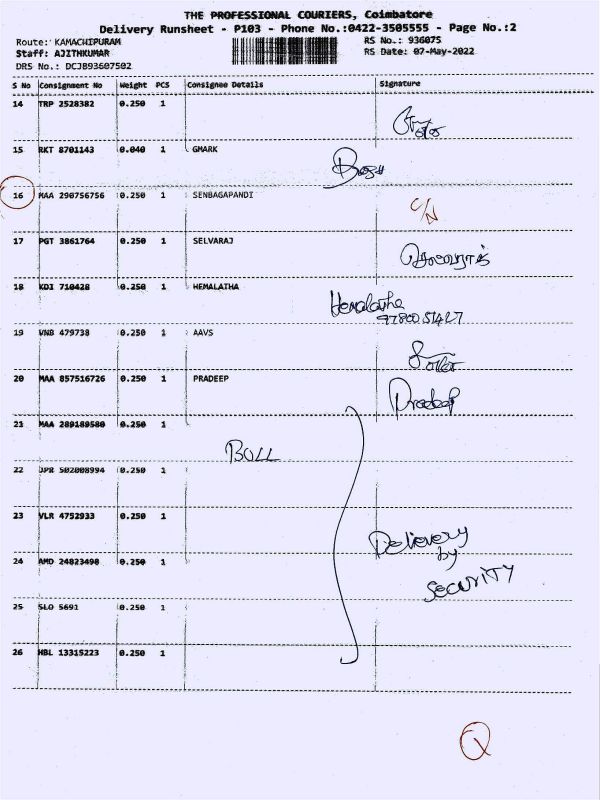 THE PROFESSIONAL COURIERS, Coimbatore
Delivery Runsheet - P103 - Phone No.:0422-3505555 - Page No.:2
Route: KAMACHIPURAM RS No.: 936075
Staff: AJITHKUMAR RS Date: 07-May-2022
DRS No.: DCJB93607502
S No Consignment No Weight PCS Consignee Details Signature
14 TRP 2528382 0.250 1
15 RKT 8701143 0.040 1 GMARK
16 MAA 290756756 0.250 1 SENBAGAPANDI C/N
17 PGT 3861764 0.250 1 SELVARAJ செல்வராஜ்
18 KDI 710428 0.250 1 HEMALATHA Hemalatha
9780051427
19 VNB 479738 0.250 1 AAVS
20 MAA 857516726 0.250 1 PRADEEP Pradeep
21 MAA 289189580 0.250 1
BULL
22 JPR 502008994 0.250 1
23 VLR 4752933 0.250 1
Delievery
by
24 AMD 24823498 0.250 1
SECURITY
25 SLO 5691 0.250 1
26 HBL 13315223 0.250 1